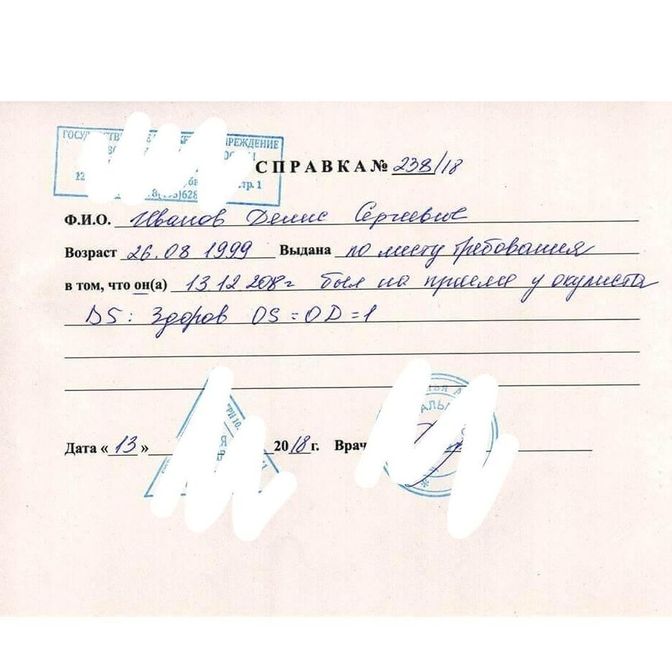 ГОСУД РЕЖДЕНИЕ
СПРАВКА № 238/18
Ф.И.О. Иванов Денис Сергеевич
Возраст 26.08 1999 Выдана по месту требования
в том, что он(а) 13 12 2018 г был на приеме у окулиста
DS: Здоров OS = OD = 1
Дата « 13 » 2018 г. Врач